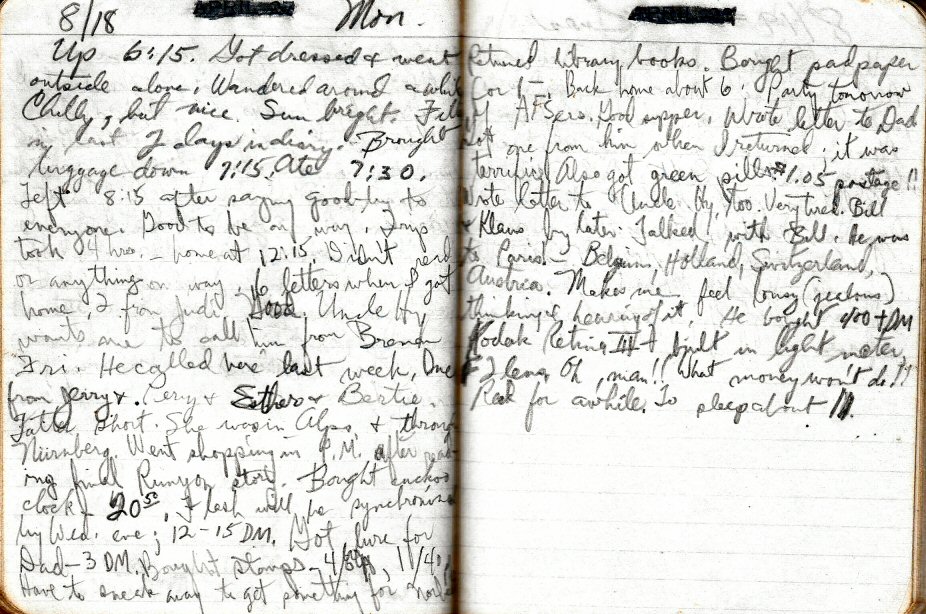 8/18 Mon.
Up 6:15. Got dressed & went
outside alone. Wandered around awhile
Chilly, but nice. Sun bright. Filled
in last 2 days in diary. Brought
luggage down 7:15. Ate 7:30.
Left 8:15 after saying goodby to
everyone. Good to be on way. Trip
took 4 hrs. – home at 12:15. Didn't read
or anything on way. 6 letters when I got
home, 2 from Judi. Good. Uncle Hy
wants me to call him from Bremen
Fri. He called here last week. One
from Jerry &. Cery & Esther & Bertie.
short. She was in Alps, & through
Nürnberg. Went shopping in P.M. after read-
ing final Runyon story. Bought cuckoo
clock – 20⁵⁰. Flash will be synchronized
by Wed. eve; 12–15 DM. Got lure for
Dad – 3 DM. Bought stamps – 11/40,
Have to sneak away to get something for
Returned library books. Bought pad paper
for 1–. Back home about 6. Party tomorrow
of AFSers. Good supper. Wrote letter to Dad
Got one from him when I returned; it was
terrific! Also got green pills $1.05 postage!!
Wrote letter to Uncle Hy, too. Very tired. Bill
& Klaus by later. Talked with Bill. He was
to Paris – Belgium, Holland, Switzerland,
Austria. Makes me feel lousy (jealous)
thinking & hearing of it. He bought 400+ DM
Kodak Retina III built in light meter,
F2 lens. Oh, man!! What money won't do!!
Read for awhile. To sleep about 11.